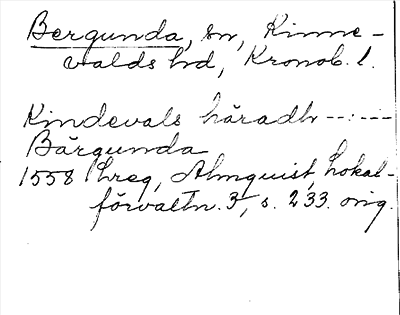 Bergunda, sn, Kinne-
valds hd, Kronob. l.
Kindevals häradh --:--
Bärgunda
1558 Lreg, Almquist, Lokal-
förvaltn. 3, s. 233. orig.